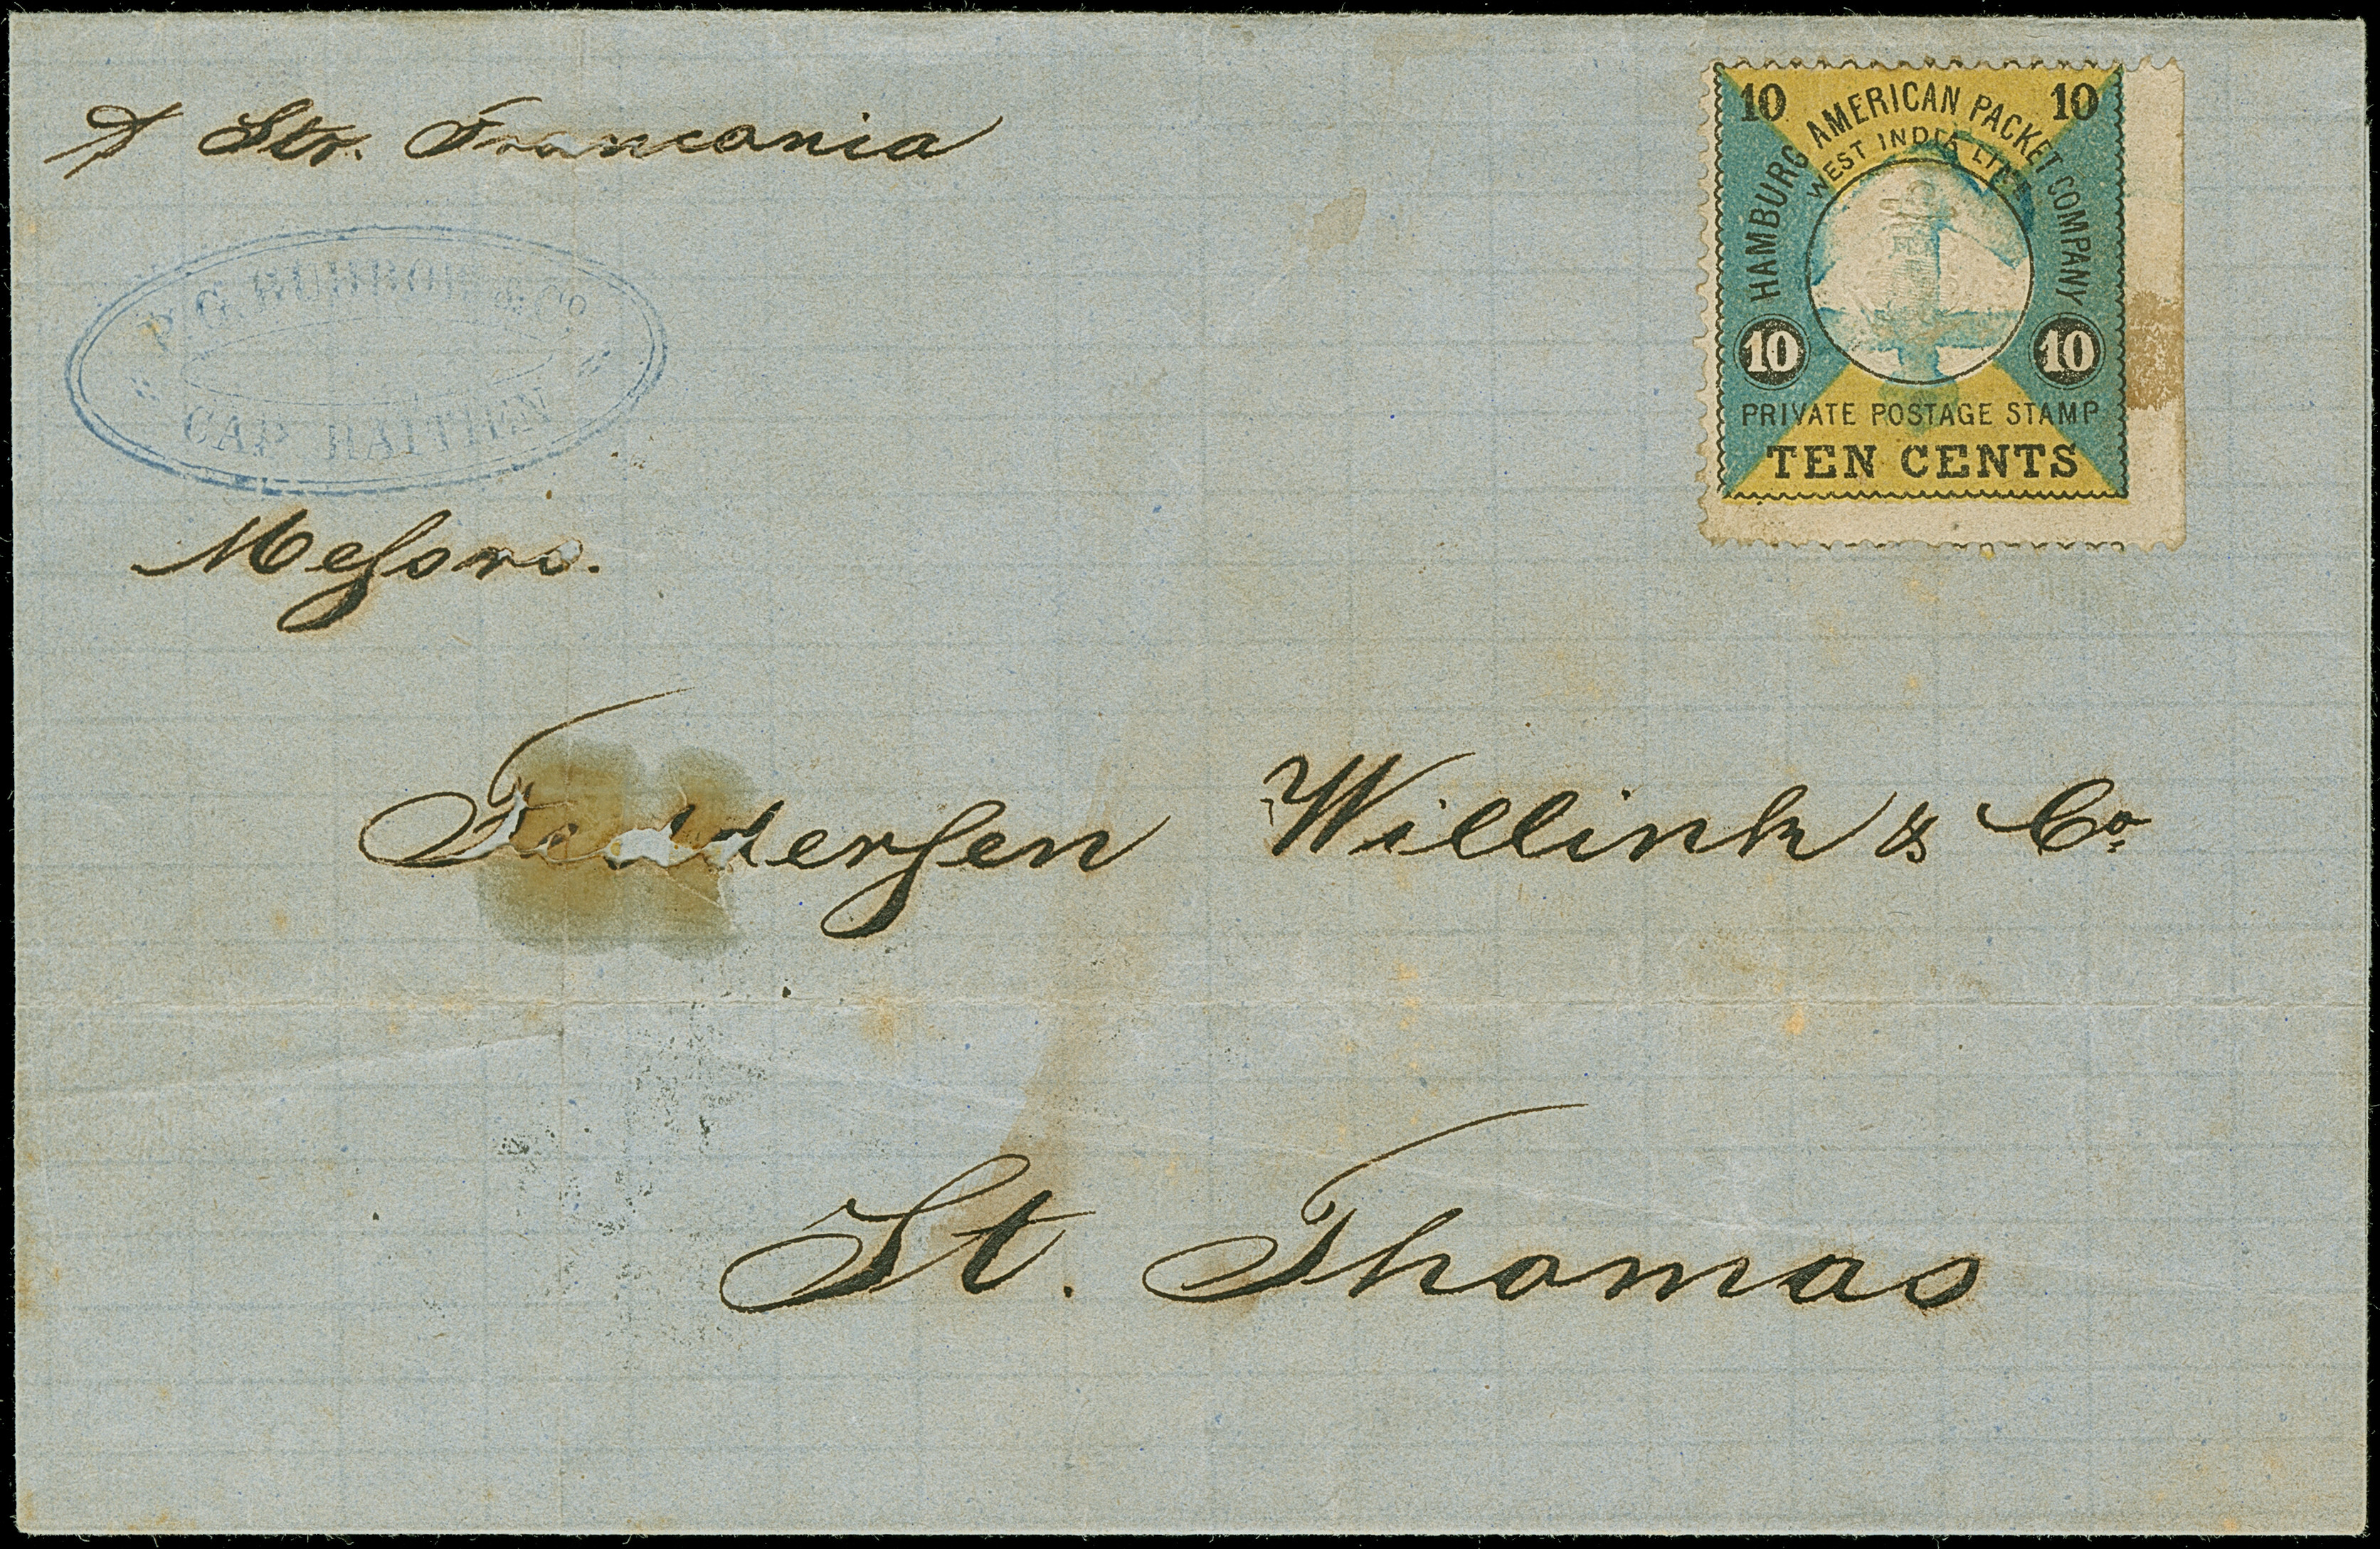 p Str. Franconia
CAP HAITIEN
& Co
Messrs.
Feddersen Willink & Co.
St. Thomas
10 10
HAMBURG AMERICAN PACKET COMPANY
WEST INDIA LINE
10 10
PRIVATE POSTAGE STAMP
TEN CENTS